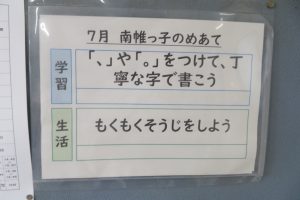 7月 南帷っ子のめあて
学習
「、」や「。」をつけて、丁
寧な字で書こう
生活
もくもくそうじをしよう